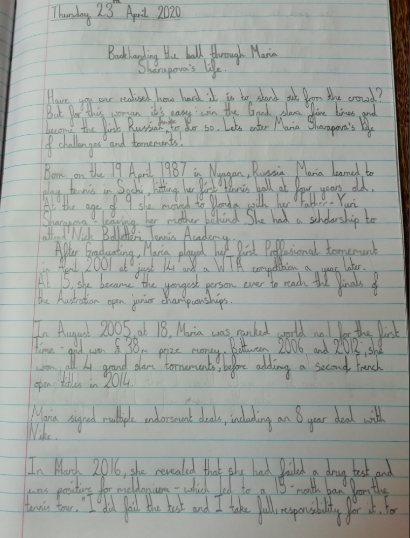 Thursday 23rd April 2020
Backhanding the ball through Maria
Sharapova's life.
Have you ever realised how hard it is to stand out from the crowd?
But for this woman it's easy-win the Grand slam five times and
become the first Russian to do so. Lets enter Maria Sharapova's life
of challenges and tornements.
Born on the 19 April 1987 in Nyagan, Russia Maria learned to
play tennis in Sochi, hitting her first tennis ball at four years old.
At the age of 9 she moved to florida with her father - Yuri
Sharapova leaving her mother behind She had a scholarship to
attend Nick Bollettieri Tennis Academy.
After Graduating, Maria played her first Proffesional tornement
in April 2001 at just 14 and a WTA competition a year later.
At 15, she became the yongest person ever to reach the finals of
the Australian open junior championships.
In August 2005, at 18, Maria was ranked world no1 for the first
time - and won £38m prize money. Between 2006 and 2012, she
won, all 4 grand slam tornements, before adding a second french
open titles in 2014.
Maria signed multiple endorsment deals, including an 8 year deal with
Nike.
In March 2016, she revealed that she had failed a drug test and
was positive for meldonium - which led to a 15-month ban from the
tennis tour. "I did fail the test and I take full responsibility for it. For